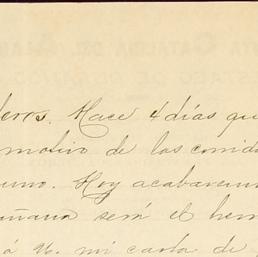 deros. Hace 4 días qu
motivo de las corrid
uno. Hoy acabaremos
añana será el her
á V. mi carta de